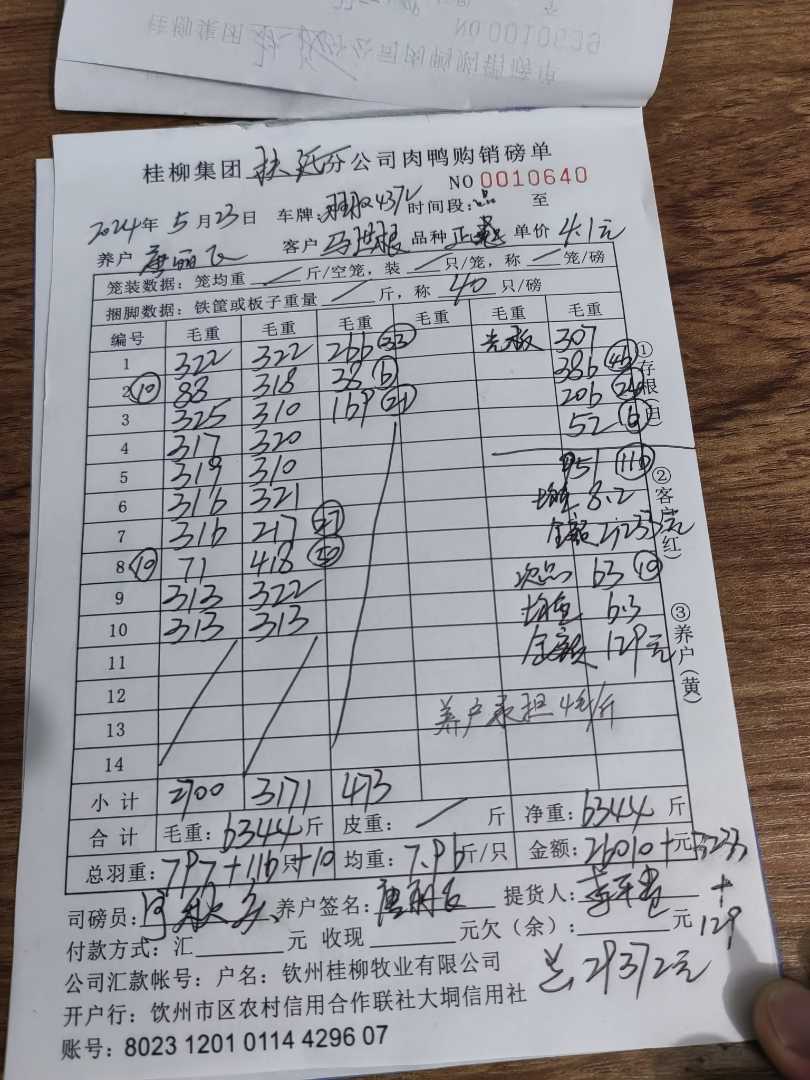 NO 0010639
桂柳集团 分公司肉鸭购销磅单
桂柳集团 扶绥分公司肉鸭购销磅单
NO 0010640
2024年 5月23日 车牌: 时间段: 至
养户 客户 马洪根 品种 单价 4.1元
笼装数据: 笼均重 / 斤/空笼, 装 / 只/笼, 称 / 笼/磅
捆脚数据: 铁筐或板子重量 / 斤, 称 40 只/磅
编号 毛重 毛重 毛重 毛重 毛重 毛重
1 322 322 266 (33) 307
2 (10) 88 318 38 (6) 386
3 325 310 169 (21) 206
4 317 320 52 (6)
5 319 310 951 (116)
6 316 321 均重 8.2
7 316 217 (27) 金额 3233元
8 (10) 71 418 次品 63 (10)
9 313 322 均重 6.3
10 313 313 金额 129元
11
12
13 养户承担4毛/斤
14
小计 2700 3171 473
合计 毛重: 6344斤 皮重: / 斤 净重: 6344斤
总羽重: 797+116只+10 均重: 7.96斤/只 金额: 26010+元3233
+
129
司磅员: 养户签名: 提货人:
付款方式: 汇 元 收现 元欠(余): 元
公司汇款帐号: 户名: 钦州桂柳牧业有限公司
总29372元
开户行: 钦州市区农村信用合作联社大垌信用社
账号: 8023 1201 0114 4296 07
①存根(白)
②客户(红)
③养户(黄)